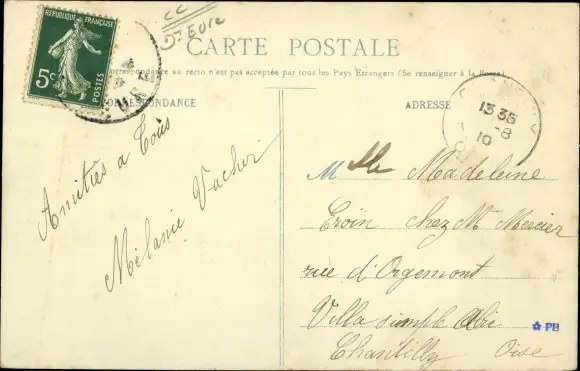 CC
Dt Eure
RÉPUBLIQUE FRANÇAISE
5c
POSTES
CARTE POSTALE
Correspondance au recto n'est pas acceptée par tous les Pays Étrangers (Se renseigner à la Poste)
CORRESPONDANCE
ADRESSE
13 35
-8
10
Amitiés a Tous
Mélanie Vacher
Mlle Madeleine
Troin chez Mr Mercier
rue d'Orgemont
Villa simple Abri
Chantilly Oise
PB